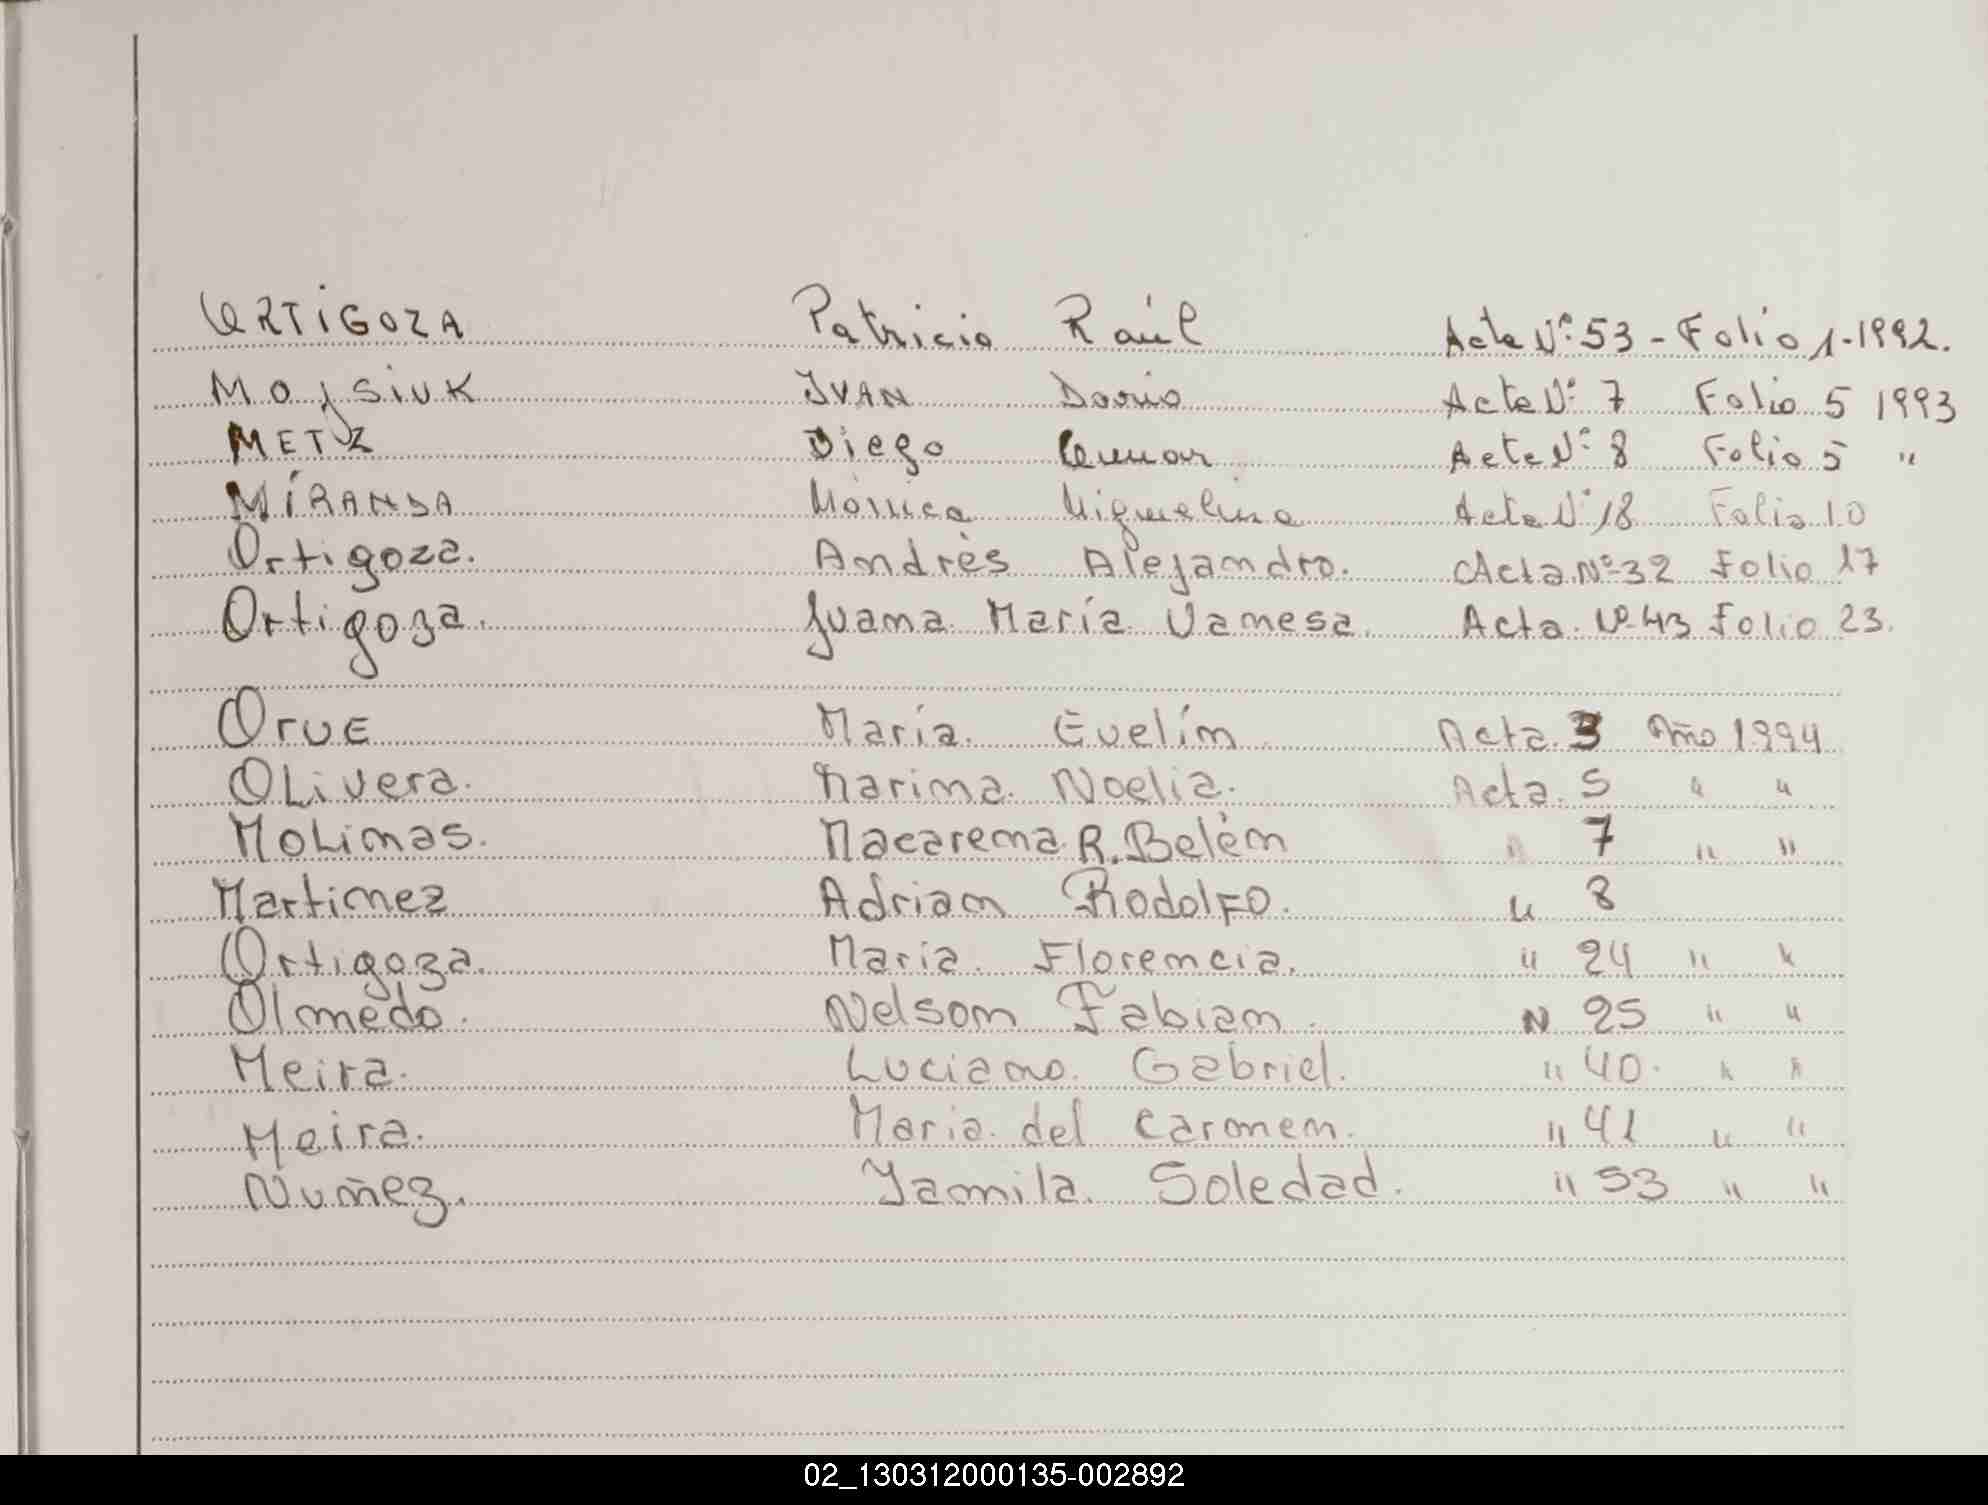 ORTIGOZA Patricio Raúl Acta Nº 53 - Folio 1-1992.
MOJSIUK IVAN Dario Acta Nº 7 Folio 5 1993
METZ Diego Omar Acta Nº 8 Folio 5 "
MIRANDA Mónica Miguelina Acta Nº 18 Folio 10
Ortigoza. Andrès Alejandro. Acta Nº 32 Folio 17
Ortigoza. Juana María Vanesa. Acta Nº 43 Folio 23.
Orue María. Evelín Acta. 3 Año 1994
Olivera. Karina. Noelia. Acta. 5 " "
Molinas. Macarena R. Belén " 7 " "
Martinez Adrian Rodolfo. " 8
Ortigoza. María. Florencia. " 24 " "
Olmedo. Nelson Fabian. " 25 " "
Meira. Luciano. Gabriel. " 40. " "
Meira. Maria del Carmen. " 41 " "
Nuñez. Yamila. Soledad. " 53 " "
02_130312000135-002892